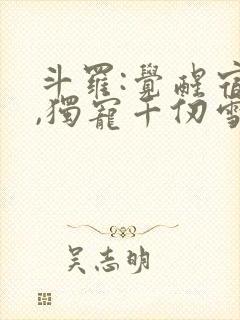 斗羅:覺醒宿
,獨寵千仞雪
吳志明